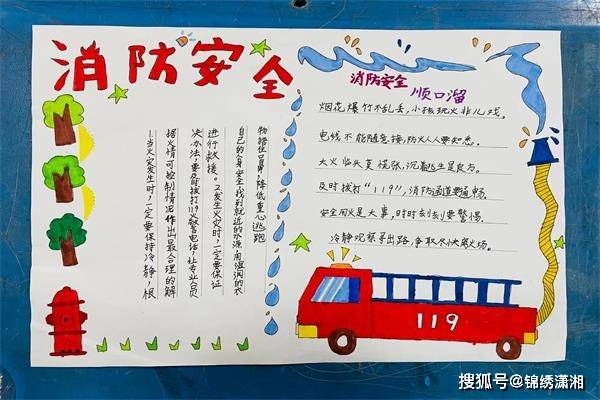 消防安全
1.当火灾发生时,一定要保持冷静,根
据火情可控制情况作出最合理的解
决办法,要及时拨打119火警电话,让专业人员
进行救援。2.发生火灾时,一定要保证
自己的人身安全,找到就近的水源,用湿润的衣
物捂住口鼻,降低重心逃跑
消防安全
顺口溜
烟花爆竹不乱丢,小孩玩火非儿戏。
电线不能随意接,防火人人要知悉。
大火临头莫慌张,沉着逃生是良方。
及时拨打“119”,消防通道要通畅。
安全用火是大事,时时刻刻要警惕。
冷静观察寻出路,争取尽快离火场。
119
搜狐号@锦绣潇湘